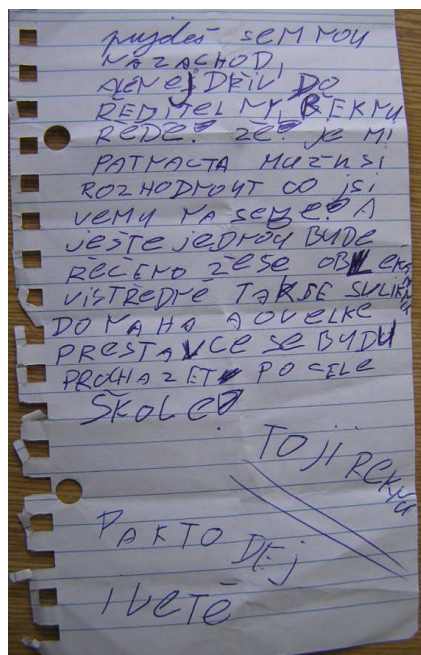 pujdeš SEM MOU
NA ZACHOD,
ALENEJ DŘIV DO
ŘEDITELNY, ŘEKNU
ŘEDE. ZE. JE MI
PATNACTA MUZU SI
ROZHODNOUT CO JSI
VEMU NA SEBE. A
JEŠTE JEDNOU BUDE
ŘEČENO ZE SE OBLEKA
VISTŘEDNĚ TAK SE SVLIKNU
DO NAHA A O VELKE
PRESTAVCE SE BUDU
PROCHAZET PO CELE
ŠKOLE
TO JI REKNU
PAK TO DEJ
IVETĚ